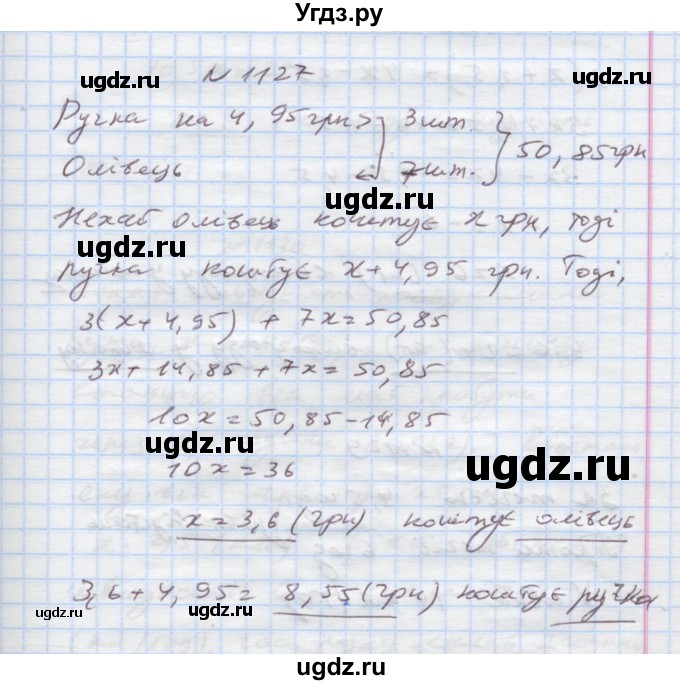 Угдз.ру
N 1127
Ручка на 4,95грн> } 3шт. } 50,85грн
Олівець ← 7шт.
Нехай олівець коштує x грн, тоді
ручка коштує x+4,95 грн. Тоді,
3(x+4,95) + 7x=50,85
3x+14,85+7x=50,85
10x=50,85-14,85
10x=36
x=3,6(грн) коштує олівець
3,6+4,95= 8,55(грн) коштує ручка
ugdz.ru
ugdz.ru
ugdz.ru
ugdz.ru
ugdz.ru
ugdz.ru
ugdz.ru
ugdz.ru
ugdz.ru
ugdz.ru
ugdz.ru